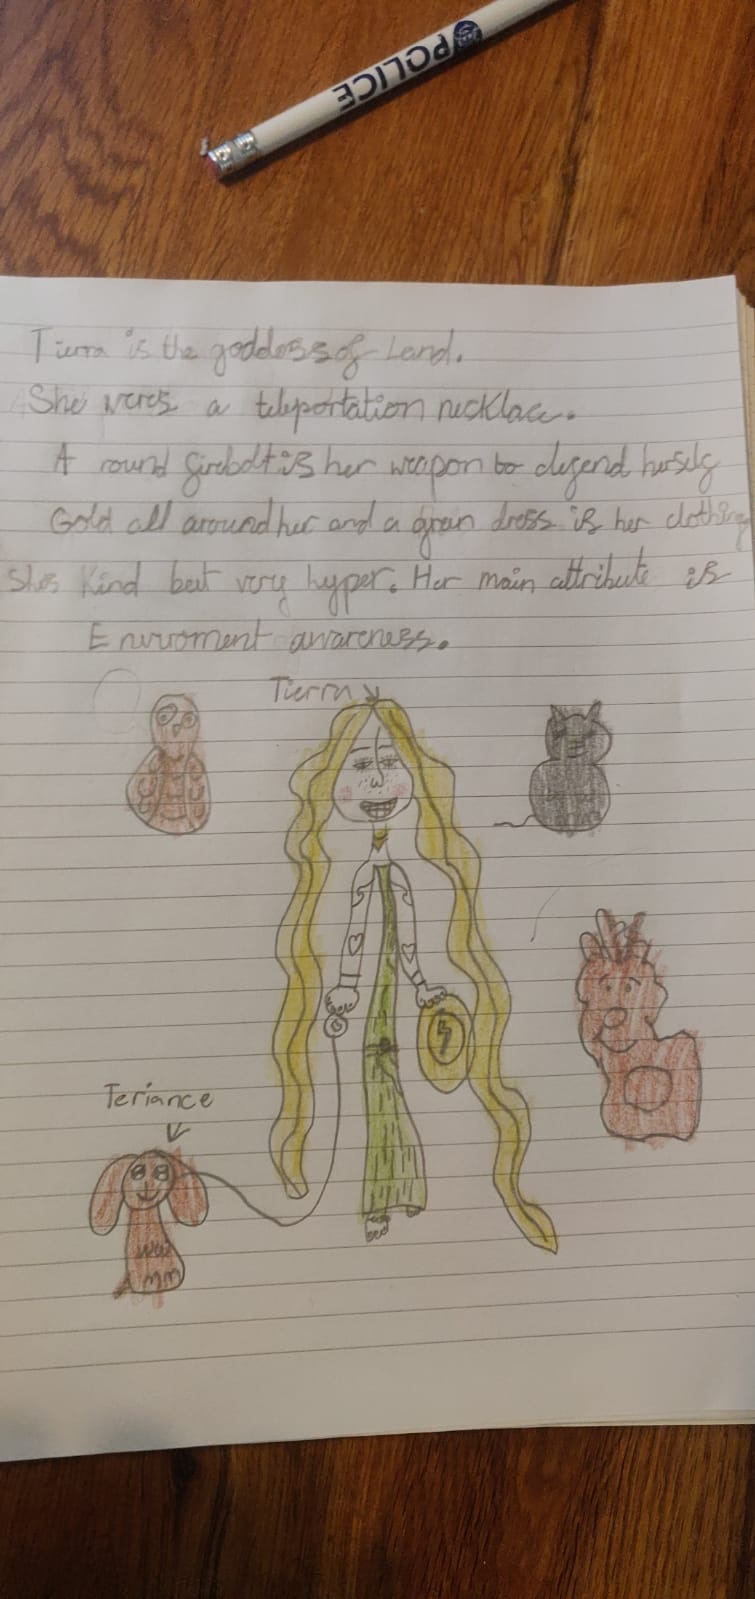 POLICE
Tierra is the goddess of Land.
She weres a teleportation necklace.
A round firebolt is her weapon to defend herself
Gold all around her and a green dress is her clothing
Shes Kind but very hyper. Her main attribute is
Enviroment awareness.
Tierra
Teriance